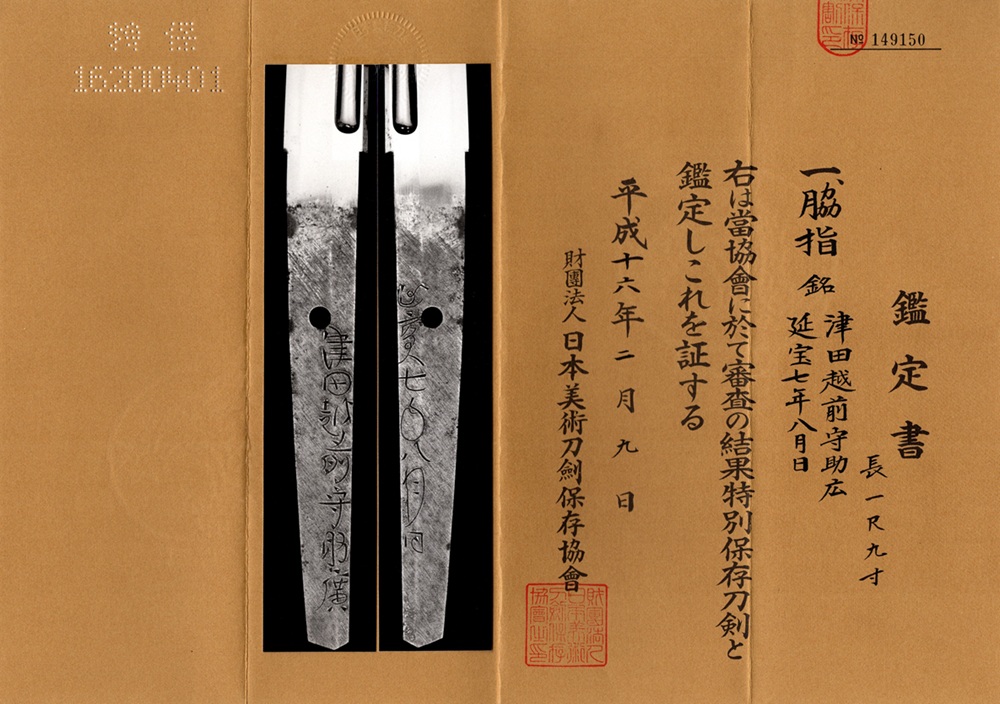 № 149150
鑑定書
長一尺九寸
一、脇指 銘 津田越前守助広
延宝七年八月日
右は當協會に於て審査の結果特別保存刀劍と
鑑定しこれを証する
平成十六年二月九日
財團法人日本美術刀劍保存協會
特保
16200401
津田越前守助廣
延宝七年八月日